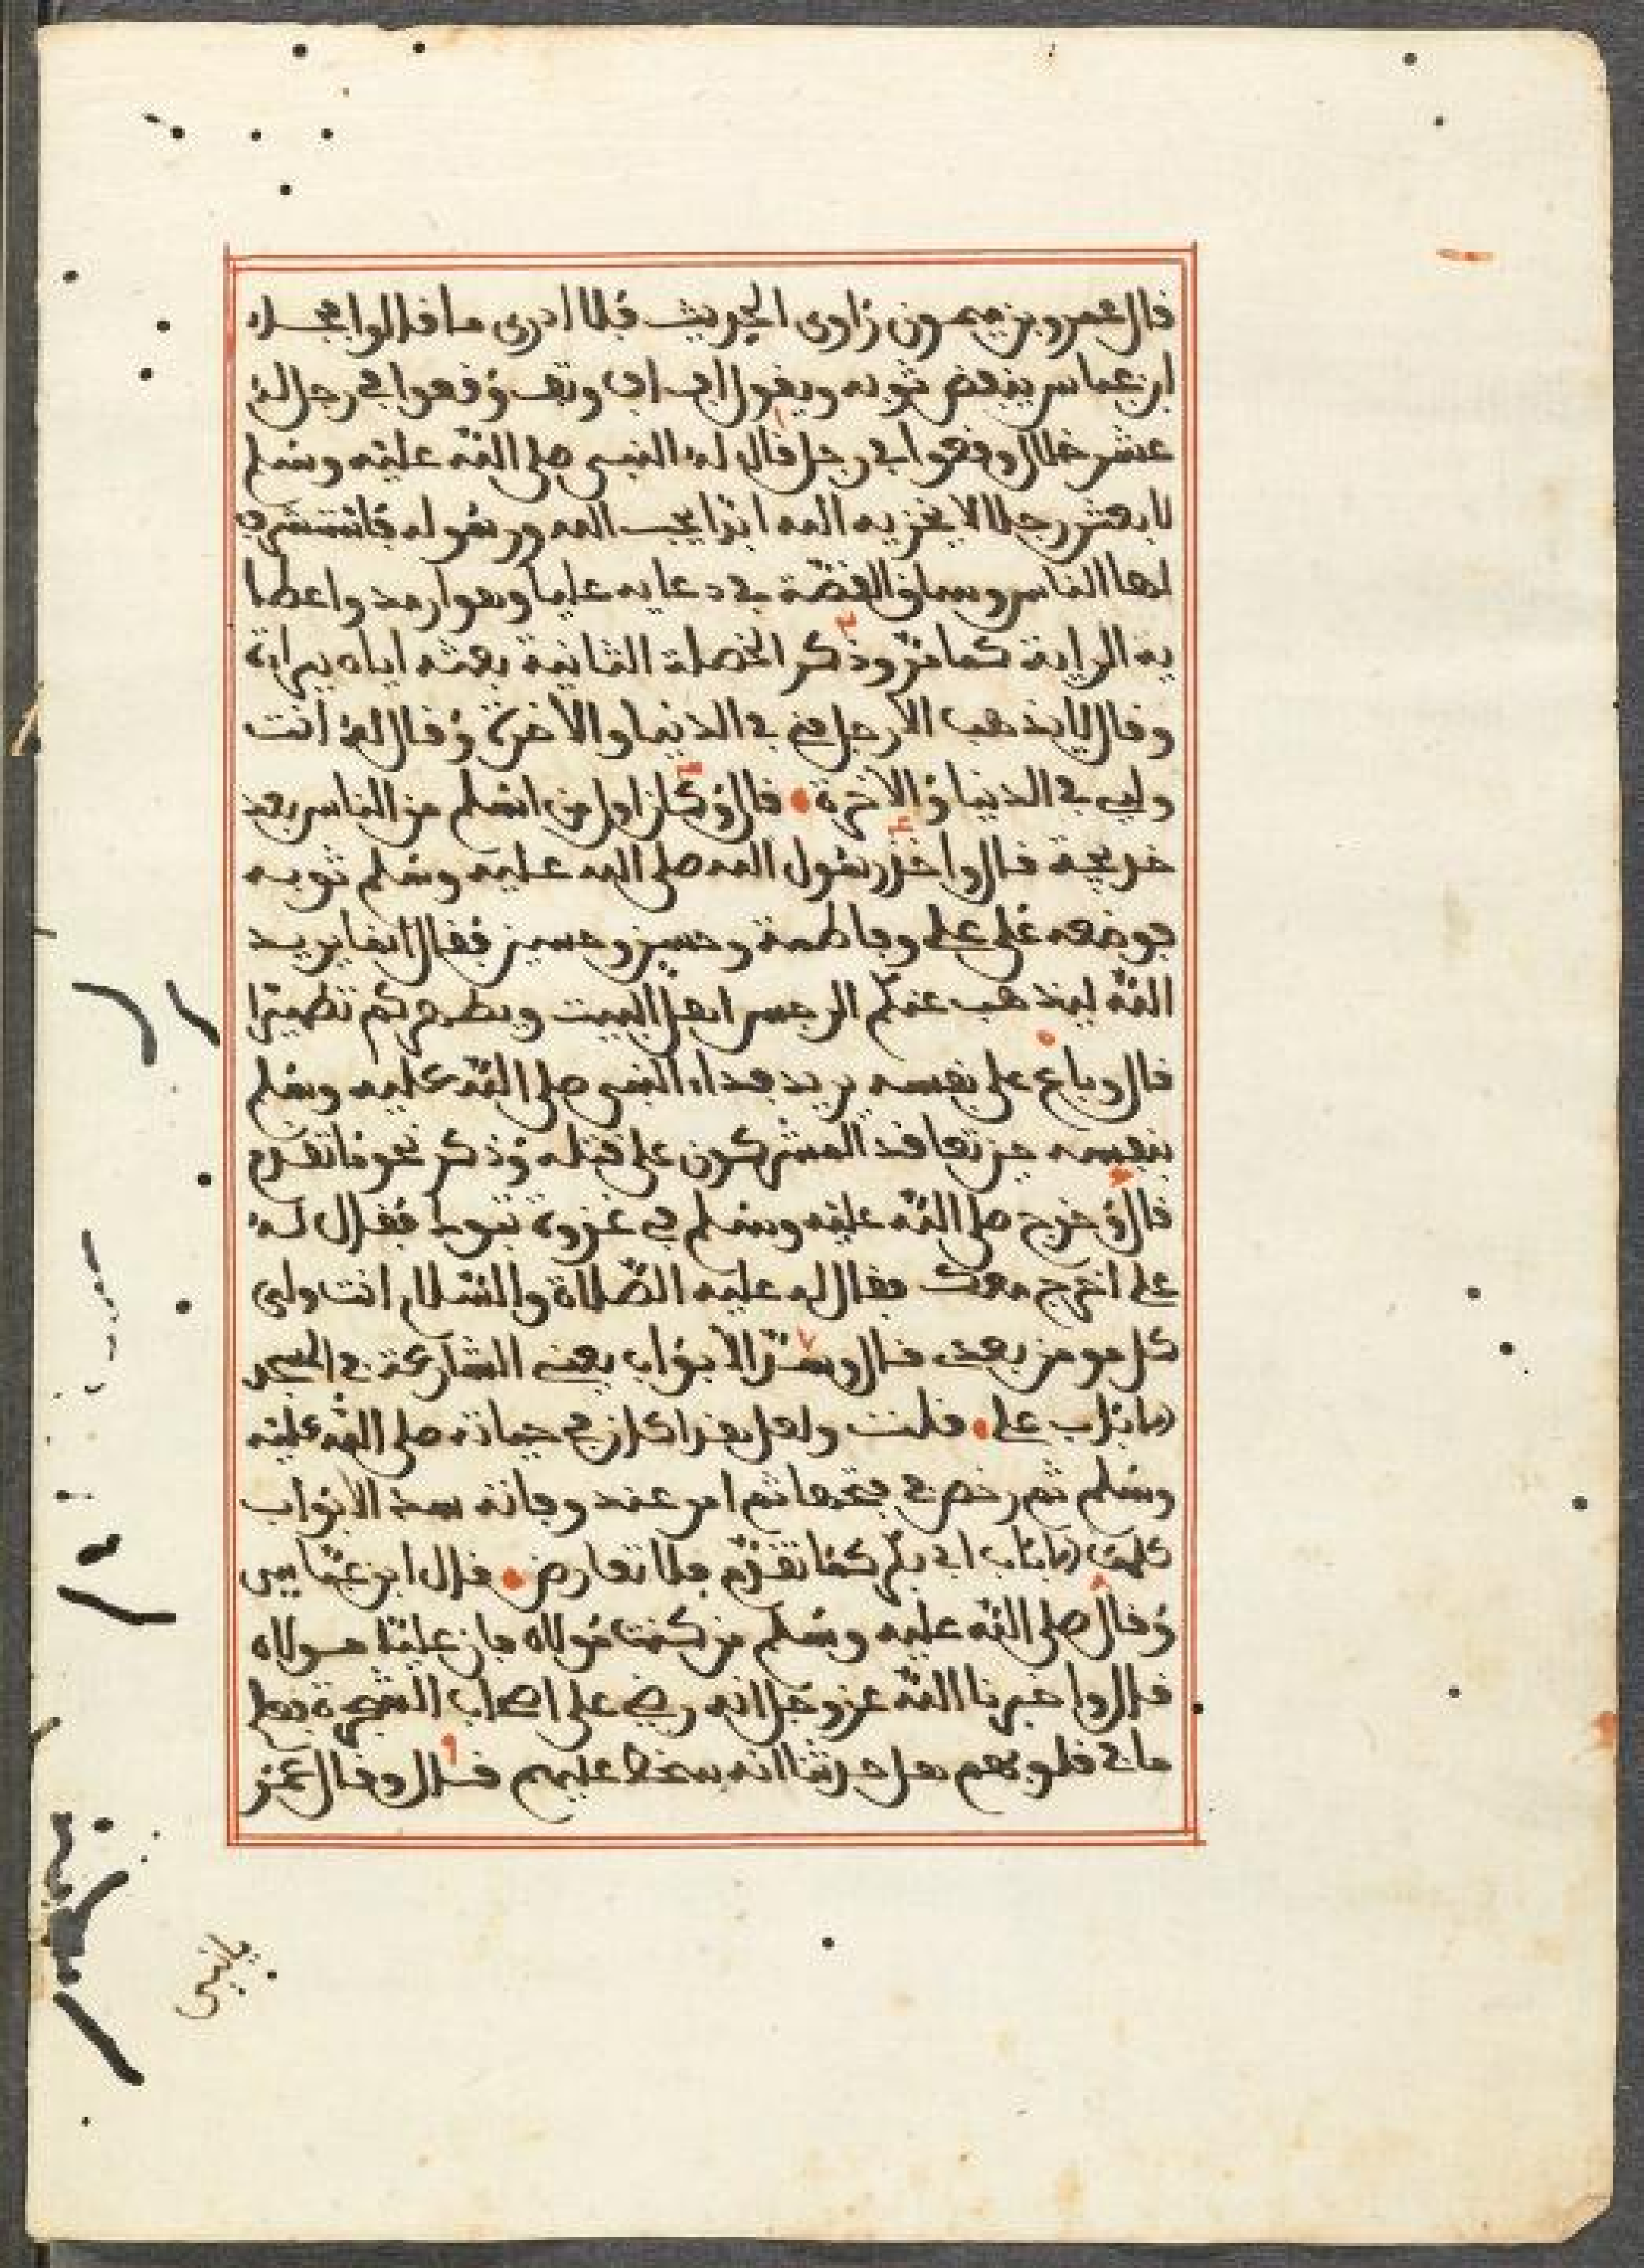 قال عمرو بن ميمون راوى الحديث فلا ادرى ما قالوا فجاء
ابن عباس ينفض ثوبه ويقول اف اف وتف وقعوا في رجل له
عشر خلال وقعوا في رجل قال له النبي صلى الله عليه وسلم
لابعثن رجلا لا يخزيه الله ابدا يحب الله ورسوله فاستشرف
لها الناس وساق القصة في دعايه عليا وهو ارمد واعطا
يه الراية كما مر وذكر الخصلة الثانية بعثه اياه ببراءة
وقال لا يذهب الا رجل مني في الدنيا والاخرة وقال له انت
وليي في الدنيا والاخرة قال وكان اول من اسلم من الناس بعد
خديجة قال واخذ رسول الله صلى الله عليه وسلم ثوبه
فوضعه على علي وفاطمة وحسن وحسين فقال انما يريد
الله ليذهب عنكم الرجس اهل البيت ويطهركم تطهيرا
قال وباع علي نفسه يريد فداء النبي صلى الله عليه وسلم
بنفسه حين تعاقد المشركون على قتله وذكر نحو ما تقدم
قال وخرج صلى الله عليه وسلم في غزوة تبوك فقال له
علي اخرج معك فقال له عليه الصلاة والسلام انت ولى
كل مومن بعدى قال وسد الابواب يعني الشارعة في المسجد
الا باب علي قلت ولعل هذا كان في حياته صلى الله عليه
وسلم ثم رخص في فتحها ثم امر عند وفاته بسد الابواب
كلها الا باب ابي بكر كما تقدم فلا تعارض قال ابن عباس
وقال صلى الله عليه وسلم من كنت مولاه فان عليا مولاه
قال واخبرنا الله عز وجل انه رضي على اصحاب الشجرة فعلم
ما في قلوبهم هل حدثنا انه سخط عليهم قال وقال عمر